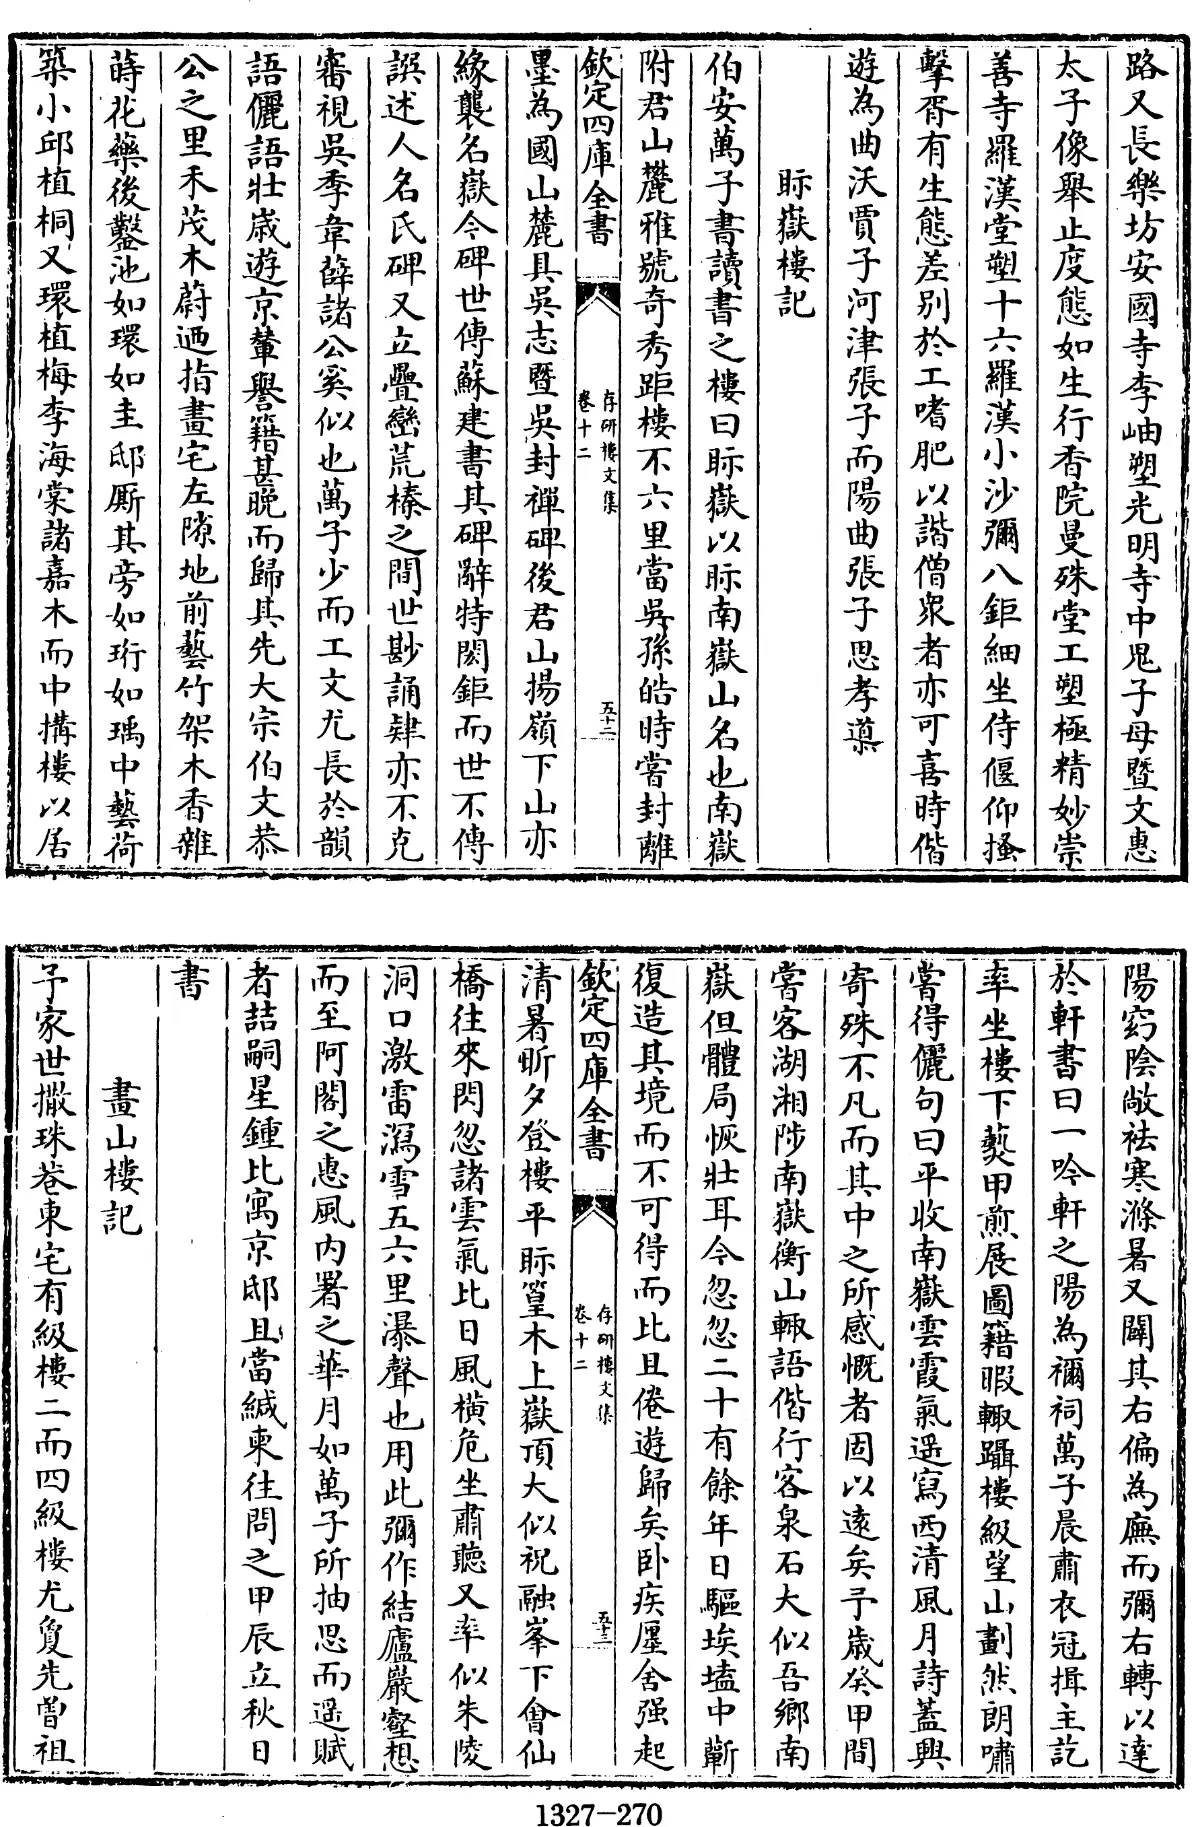 路又長樂坊安國寺李岫塑光明寺中鬼子母暨文惠
太子像舉止度態如生行香院曼殊堂工塑極精妙崇
善寺羅漢堂塑十六羅漢小沙彌八鉅細坐侍偃仰搔
擊胥有生態差别於工嗜肥以諧僧衆者亦可喜時偕
遊為曲沃賈子河津張子而陽曲張子思孝導
眎嶽樓記
伯安萬子書讀書之樓曰眎嶽以眎南嶽山名也南嶽
附君山麓雅號奇秀距樓不六里當吳孫皓時嘗封離
欽定四庫全書
存研樓文集
卷十二
五十二
墨為國山麓具吳志暨吳封禪碑後君山揚嶺下山亦
緣襲名嶽今碑世傳蘇建書其碑辭特閎鉅而世不傳
譔述人名氏碑又立疊巒荒榛之間世尠誦肄亦不克
審視吳季韋薛諸公奚似也萬子少而工文尤長於韻
語儷語壯歲遊京輦譽籍甚晚而歸其先大宗伯文恭
公之里禾茂木蔚迺指畫宅左隙地前藝竹架木香雜
蒔花藥後鑿池如環如圭邸厮其旁如珩如瑀中藝荷
築小邱植桐又環植梅李海棠諸嘉木而中搆樓以居
陽窈陰敞袪寒滌暑又闢其右偏為廡而彌右轉以達
於軒書曰一吟軒之陽為禰祠萬子晨肅衣冠揖主訖
率坐樓下爇甲煎展圖籍暇輙躡樓級望山劃然朗嘯
嘗得儷句曰平收南嶽雲霞氣遥寫西清風月詩蓋興
寄殊不凡而其中之所感慨者固以遠矣予歲癸甲間
嘗客湖湘陟南嶽衡山輙語偕行客泉石大似吾鄉南
嶽但體局恢壯耳今忽忽二十有餘年日驅埃壒中蘄
復造其境而不可得而比且倦遊歸矣卧疾㕓舍强起
欽定四庫全書
存研樓文集
卷十二
五十三
清暑昕夕登樓平眎篁木上嶽頂大似祝融峯下會仙
橋往來閃忽諸雲氣比日風橫危坐肅聽又率似朱陵
洞口激雷瀉雪五六里瀑聲也用此彌作結廬巖壑想
而至阿閣之惠風内署之華月如萬子所抽思而遥賦
者詰嗣星鍾比寓京邸且當緘柬往問之甲辰立秋日
書
畫山樓記
予家世撒珠巷東宅有級樓二而四級樓尤夐先曾祖
1327-270